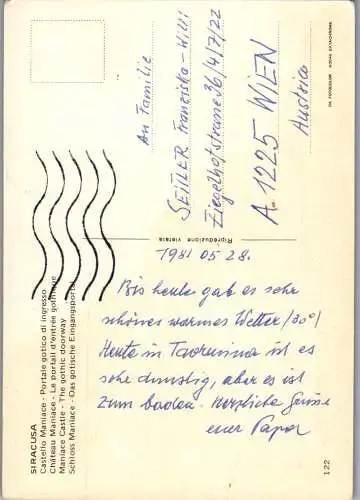 SIRACUSA
Castello Maniace - Portale gotico di ingresso
Château Maniace - Le portail d'entrée gothique
Maniace Castle - The gothic doorway
Schloss Maniace - Das gotische Eingangsportal
1981 05 28.
Bis heute gab es sehr
schönes warmes Wetter (30°)
Heute in Taormina ist es
sehr dunstig, aber es ist
zum baden. Herzliche Grüsse
euer Papa
Riproduzione vietata
An Familie
SEITLER Franziska-Willi
Ziegelhofstrasse 36/4/7/22
A 1225 WIEN
Austria
122